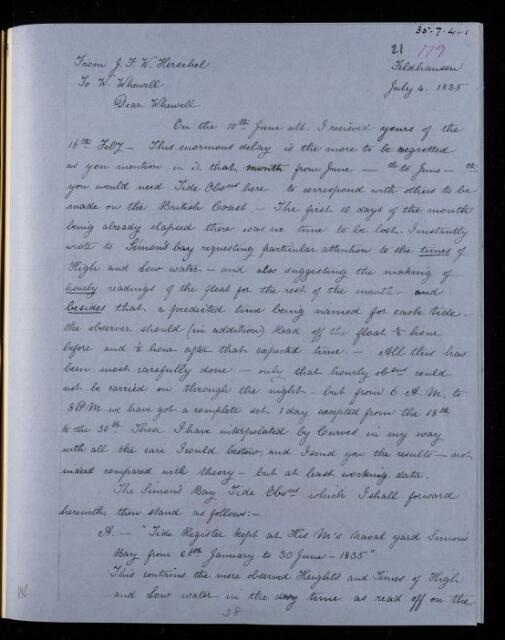 35-7-4-1
21 179
From J. F. W. Herschel Feldhausen
To W. Whewell July 4. 1835
Dear Whewell
On the 10th June ult. I recieved yours of the
16th Feby — This enormous delay is the more to be regretted
as you mention in it that month from June — th to June — th
you would need Tide Obsns here to correspond with others to be
made on the British Coast — The first 10 days of the month
being already elapsed there was no time to be lost. I instantly
wrote to Simon's bay requesting particular attention to the times of
High and Low water — and also suggesting the making of
hourly readings of the float for the rest of the month — and
besides that a predicted time being named for each tide —
the observer should (in addition) Read off the float ½ hour
before and ½ hour after that expected time — All this has
been most carefully done — only that hourly obsns could
not be carried on through the night — but from 6 A.M. to
8 P.M we have got a complete set 1 day excepted from the 18th
to the 30th. These I have interpolated by Curves in my way
with all the care I could bestow, and I send you the results — not
indeed compared with theory — but at least working data.
The Simon's Bay Tide Obsns which I shall forward
herewith, then stand as follows:—
A. — "Tide Register kept at His M's Naval yard Simon's
Bay from 6th January to 30 June — 1835"
This contains the mere observed Heights and Times of High
and Low water in the day time as read off on the
38